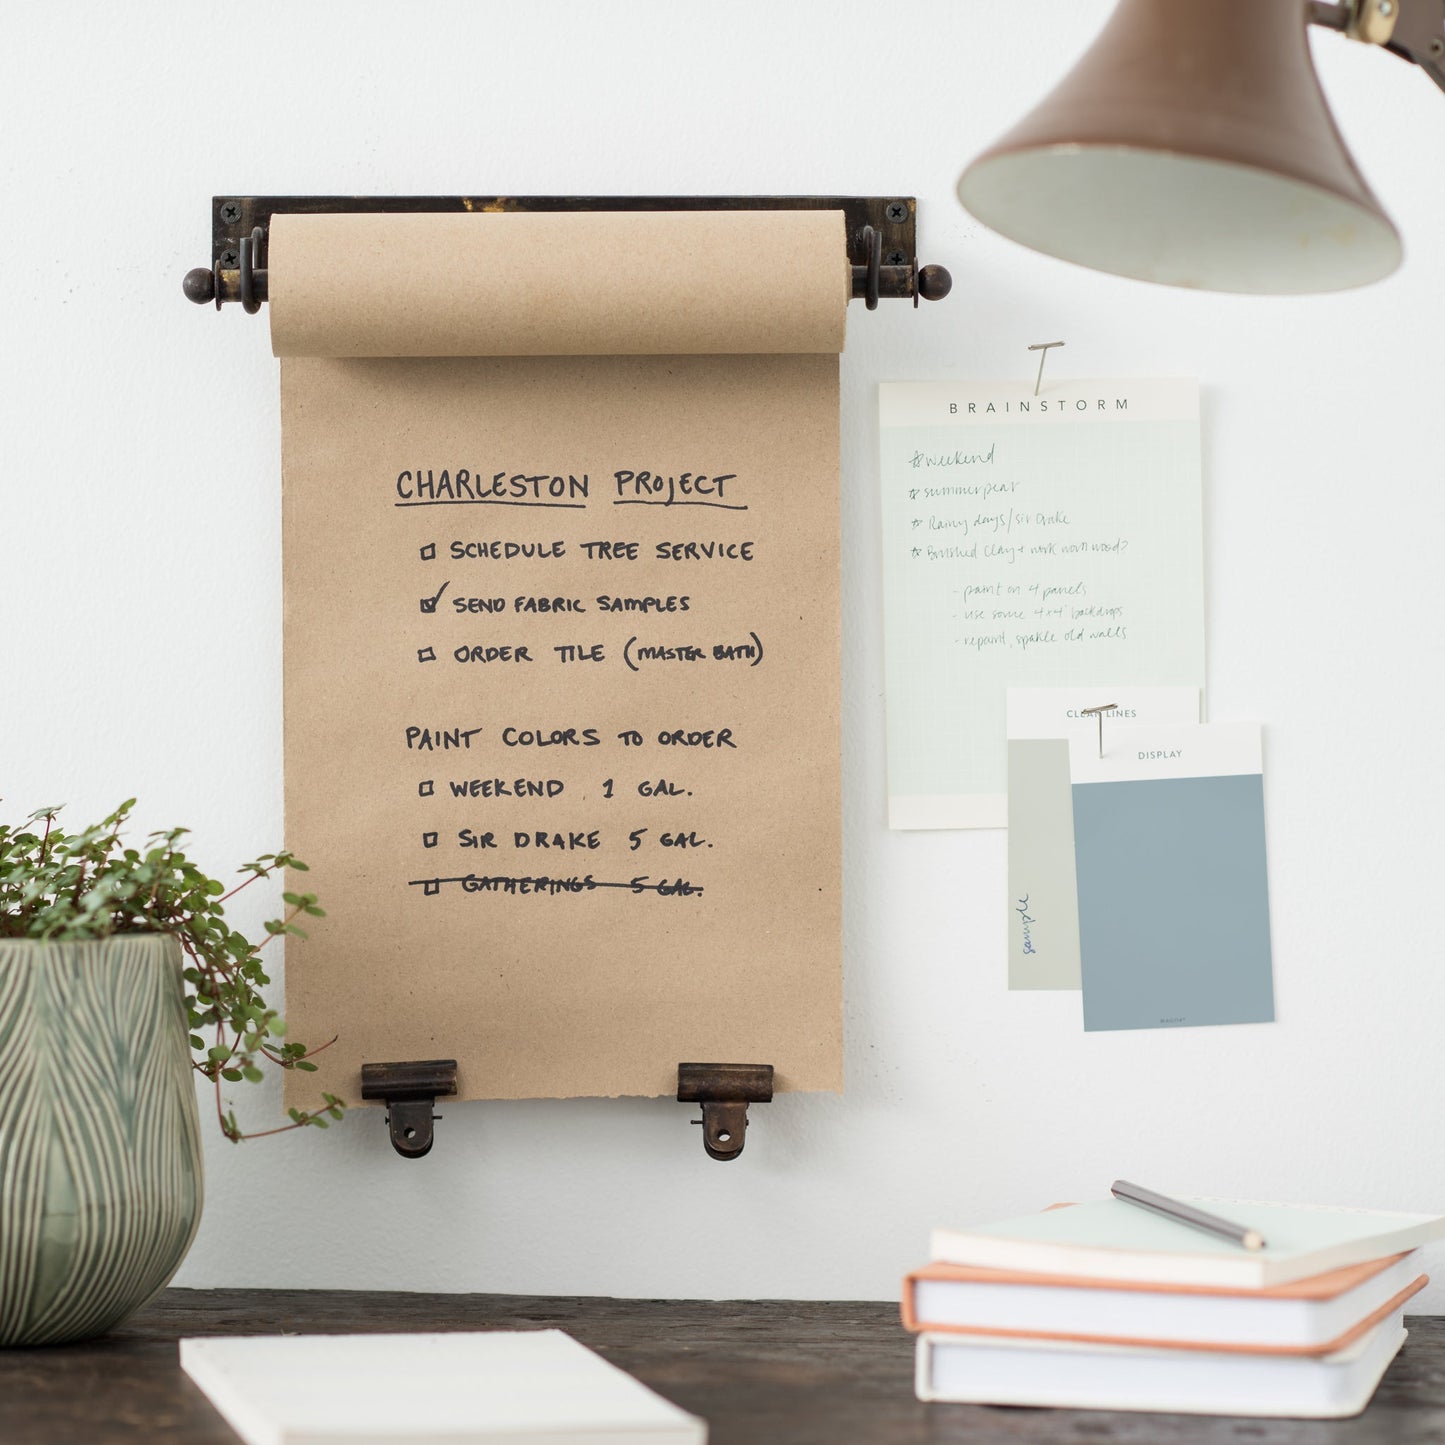 CHARLESTON PROJECT
SCHEDULE TREE SERVICE
SEND FABRIC SAMPLES
ORDER TILE (MASTER BATH)
PAINT COLORS TO ORDER
WEEKEND 1 GAL.
SIR DRAKE 5 GAL.
GATHERINGS 5 GAL.
BRAINSTORM
weekend
summer pear
Rainy days/sir Drake
Brushed clay + work worn wood?
- paint on 4 panels
- use some 4x4' backdrops
- repaint, spakle old walls
CLEAN LINES
sample
DISPLAY